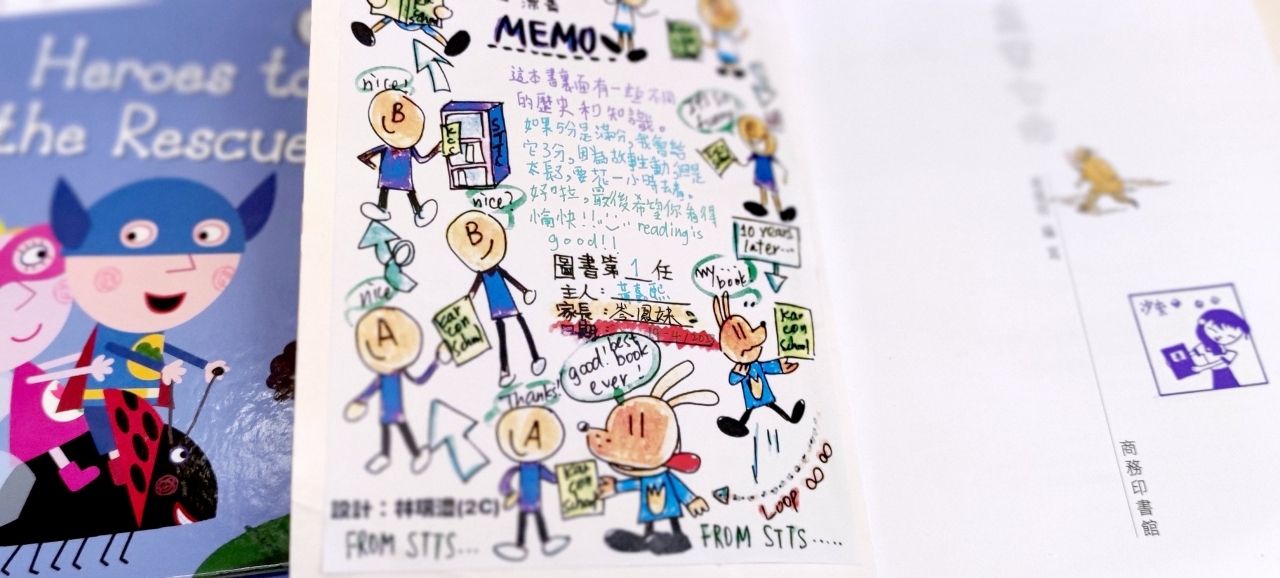 Heroes to
the Rescue
MEMO
nice!
B
KCS
STTS
這本書裏面有一些不同
的歷史和知識。
如果5分是滿分,我會給
它3分,因為故事生動,但是
太長了,要花一小時去看。
好啦,最後希望你看得
愉快!! reading is
good!!
nice?
B
圖書第 1 任
主人:
家長:岑鳳妹
日期:
nice
A
Ear
con
school
10 years
later...
my book
Ear
con
school
good! best
book
ever!
Thanks!
A
Ear
con
school
LOOP
設計:林瑞澧(2C)
FROM STTS...
FROM STTS.....
沙皇
商務印書館